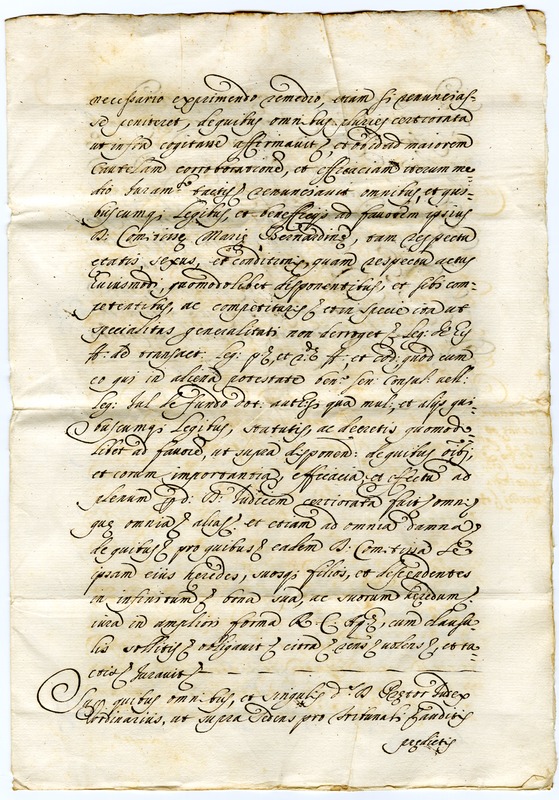 necessario exprimendo remedio, etiam si renuncias-
se peniteret, de quibus omnibus pluries certiorata
ut infra cogitane affirmavit, et ob id ad maiorem
Cautelam corroborationē, et efficaciam iterum me-
dio iuram.to tactis renunciavit omnibus, et qui-
buscumq; Legibus, et beneficijs ad favorem ipsius
D. Comitisse Marie Bernardine, tam respectu
etatis, sexus, et conditionis, quam respectu actus
huiusmodi, quomodolibet disponentibus, et sibi com-
petentibus, ac competituris et in specie ita ut
specialitas generalitati non deroget Leg: de
ff: de transact: Leg: p.a, et ff: et Cod: quod cum
eo qui in aliena potestate ben: sen: Consul: vell:
Leg: Iul: de fundo dot: autes qua mul:, et alijs qui-
buscumq; Legibus, statutis, ac decretis quomodo-
libet ad favorē, ut supra disponen: de quibus oībꝫ,
et eorum importantia, efficacia, et effectu ad
plenum p d. D. Iudicem certiorata fuit omni-
que omnia alias et etiam ad omnia damna
de quibus pro quibus eadem D. Comitissa Se
ipsam eius heredes, suosq; filios, et descendentes
in infinitum bona sua, ac suorum heredum
iura in ampliori forma R. C. Ap., cum clausu-
lis solitis obligavit citra sens volens, et ta-
ctis Iuravit
Su quibus omnibus, et singulis d. D. Pretor Iudex
Ordinarius, ut supra sedens pro tribunali auditis
predictis